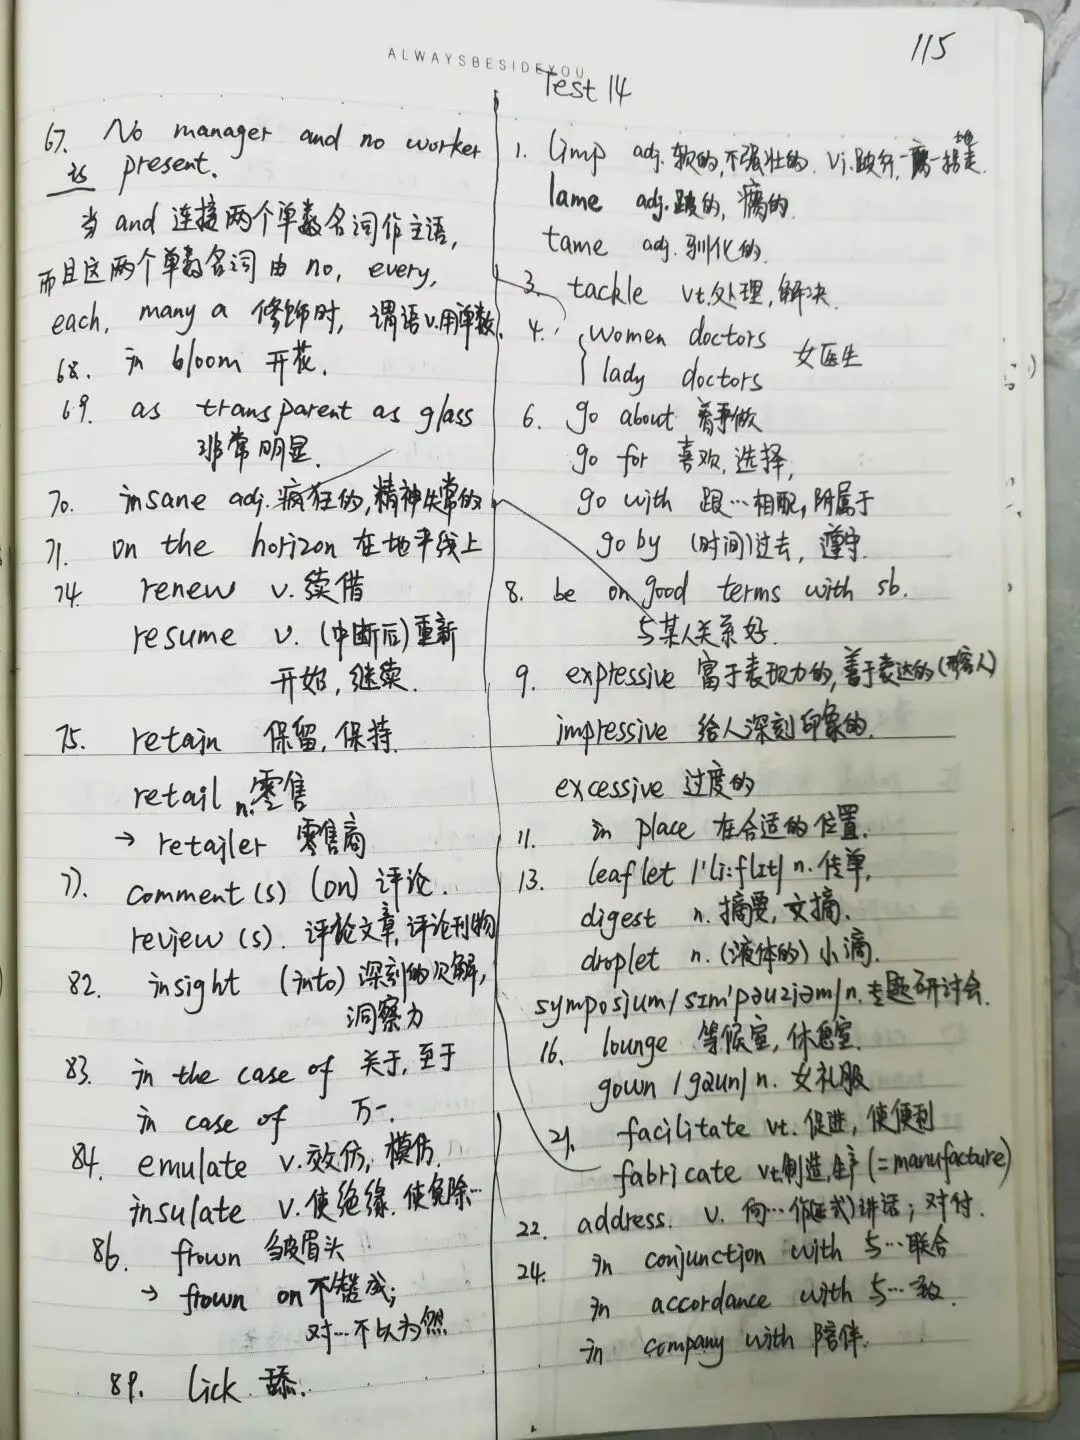 ALWAYSBESIDEYOU
115
67. No manager and no worker
is present.
当 and 连接两个单数名词作主语,
而且这两个单数名词由 no, every,
each, many a 修饰时, 谓语v.用单数.
68. in bloom 开花.
69. as transparent as glass
非常明显.
70. insane adj. 疯狂的,精神失常的
71. on the horizon 在地平线上
74. renew v. 续借
resume v. (中断后)重新
开始, 继续.
75. retain 保留, 保持.
retail n.零售
→ retailer 零售商
77. comment(s) (on) 评论.
review(s). 评论文章, 评论刊物
82. insight (into) 深刻的了解,
洞察力
83. in the case of 关于, 至于
in case of 万一.
84. emulate v.效仿, 模仿.
insulate v.使绝缘, 使免除…
86. frown 皱眉头
→ frown on 不赞成;
对…不以为然
89. lick 舔.
Test 14
1. limp adj. 软的,不强壮的. vi.跛行,一瘸一拐地走.
lame adj.跛的, 瘸的.
tame adj. 驯化的.
3. tackle vt.处理, 解决.
4. women doctors
女医生
lady doctors
6. go about 着手做
go for 喜欢, 选择,
go with 跟…相配, 附属于
go by (时间)过去, 遵守.
8. be on good terms with sb.
与某人关系好.
9. expressive 富于表现力的, 善于表达的(形容人)
impressive 给人深刻印象的.
excessive 过度的
11. in place 在合适的位置.
13. leaflet /'li:flɪt/ n. 传单,
digest n. 摘要, 文摘.
droplet n. (液体的) 小滴.
symposium /sɪm'pəuziəm/ n. 专题研讨会.
16. lounge 等候室, 休息室.
gown /gaun/ n. 女礼服
21. facilitate vt. 促进, 使便利
fabricate vt.制造,生产 (=manufacture)
22. address. v. 向…作(正式)讲话; 对付.
24. in conjunction with 与…联合
in accordance with 与…一致.
in company with 陪伴.